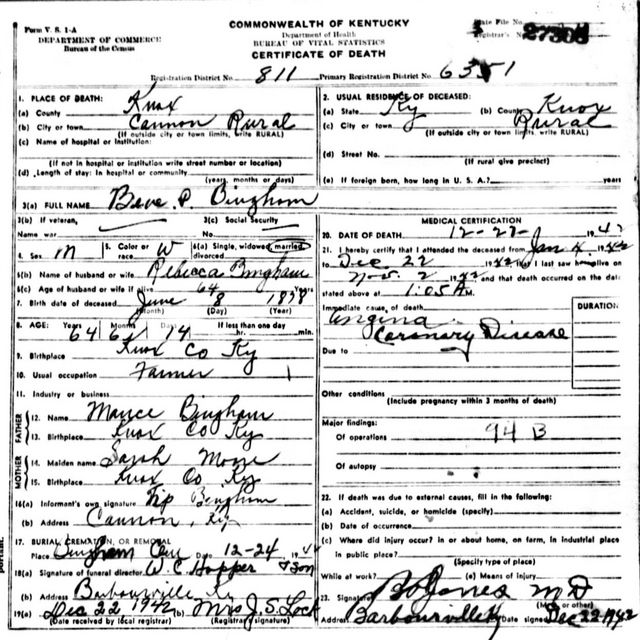 Form V. S. 1-A
DEPARTMENT OF COMMERCE
Bureau of the Census
COMMONWEALTH OF KENTUCKY
Department of Health
BUREAU OF VITAL STATISTICS
CERTIFICATE OF DEATH
State File No.
Registrar's No. 27308
Registration District No. 811 Primary Registration District No. 6351
1. PLACE OF DEATH:
(a) County Knox
(b) City or town Cannon Rural
(If outside city or town limits, write RURAL)
(c) Name of hospital or institution:
(If not in hospital or institution write street number or location)
(d) Length of stay: In hospital or community
(years, months or days)
2. USUAL RESIDENCE OF DECEASED:
(a) State Ky (b) County Knox
(c) City or town Rural
(If outside city or town limits, write RURAL)
(d) Street No.
(If rural give precinct)
(e) If foreign born, how long in U. S. A.? years
3(a) FULL NAME Beve. P. Bingham
3(b) If veteran, 3(c) Social Security
Name war No.
4. Sex M 5. Color or race W 6(a) Single, widowed, married, divorced
6(b) Name of husband or wife Rebecca Bingham
6(c) Age of husband or wife if alive 64 Years
7. Birth date of deceased June 8 1878
(Month) (Day) (Year)
8. AGE: Years Months Days If less than one day
64 6 14 hr. min.
9. Birthplace Knox Co Ky
10. Usual occupation Farmer
11. Industry or business
FATHER
12. Name Bingham
13. Birthplace Knox Co Ky
MOTHER
14. Maiden name Sarah
15. Birthplace Knox Co. Ky
16(a) Informant's own signature Bingham
(b) Address Cannon, Ky
17. BURIAL, CREMATION, OR REMOVAL
Place Bingham Cem Date 12-24 194
18(a) Signature of funeral director W. C. Hopper & Son
(b) Address Barbourville Ky
19(a) Dec 22 1942 (b) Mrs J. S. Lock
(Date received by local registrar) (Registrar's signature)
MEDICAL CERTIFICATION
20. DATE OF DEATH 12-22- 194
21. I hereby certify that I attended the deceased from Jan 1942
to Dec 22 1942, that I last saw him alive on
1942 and that death occurred on the date
stated above at 1:05 A m.
Immediate cause of death DURATION
Angina
Coronary Disease
Due to
Other conditions
(Include pregnancy within 3 months of death)
Major findings:
Of operations 94 B
Of autopsy
22. If death was due to external causes, fill in the following:
(a) Accident, suicide, or homicide (specify)
(b) Date of occurrence
(c) Where did injury occur? in or about home, on farm, in industrial place
in public place?
(Specify type of place)
While at work? (e) Means of injury
23. Signature Jones M D
(M. D. or other)
Address Barbourville Ky Date signed Dec 22 1942